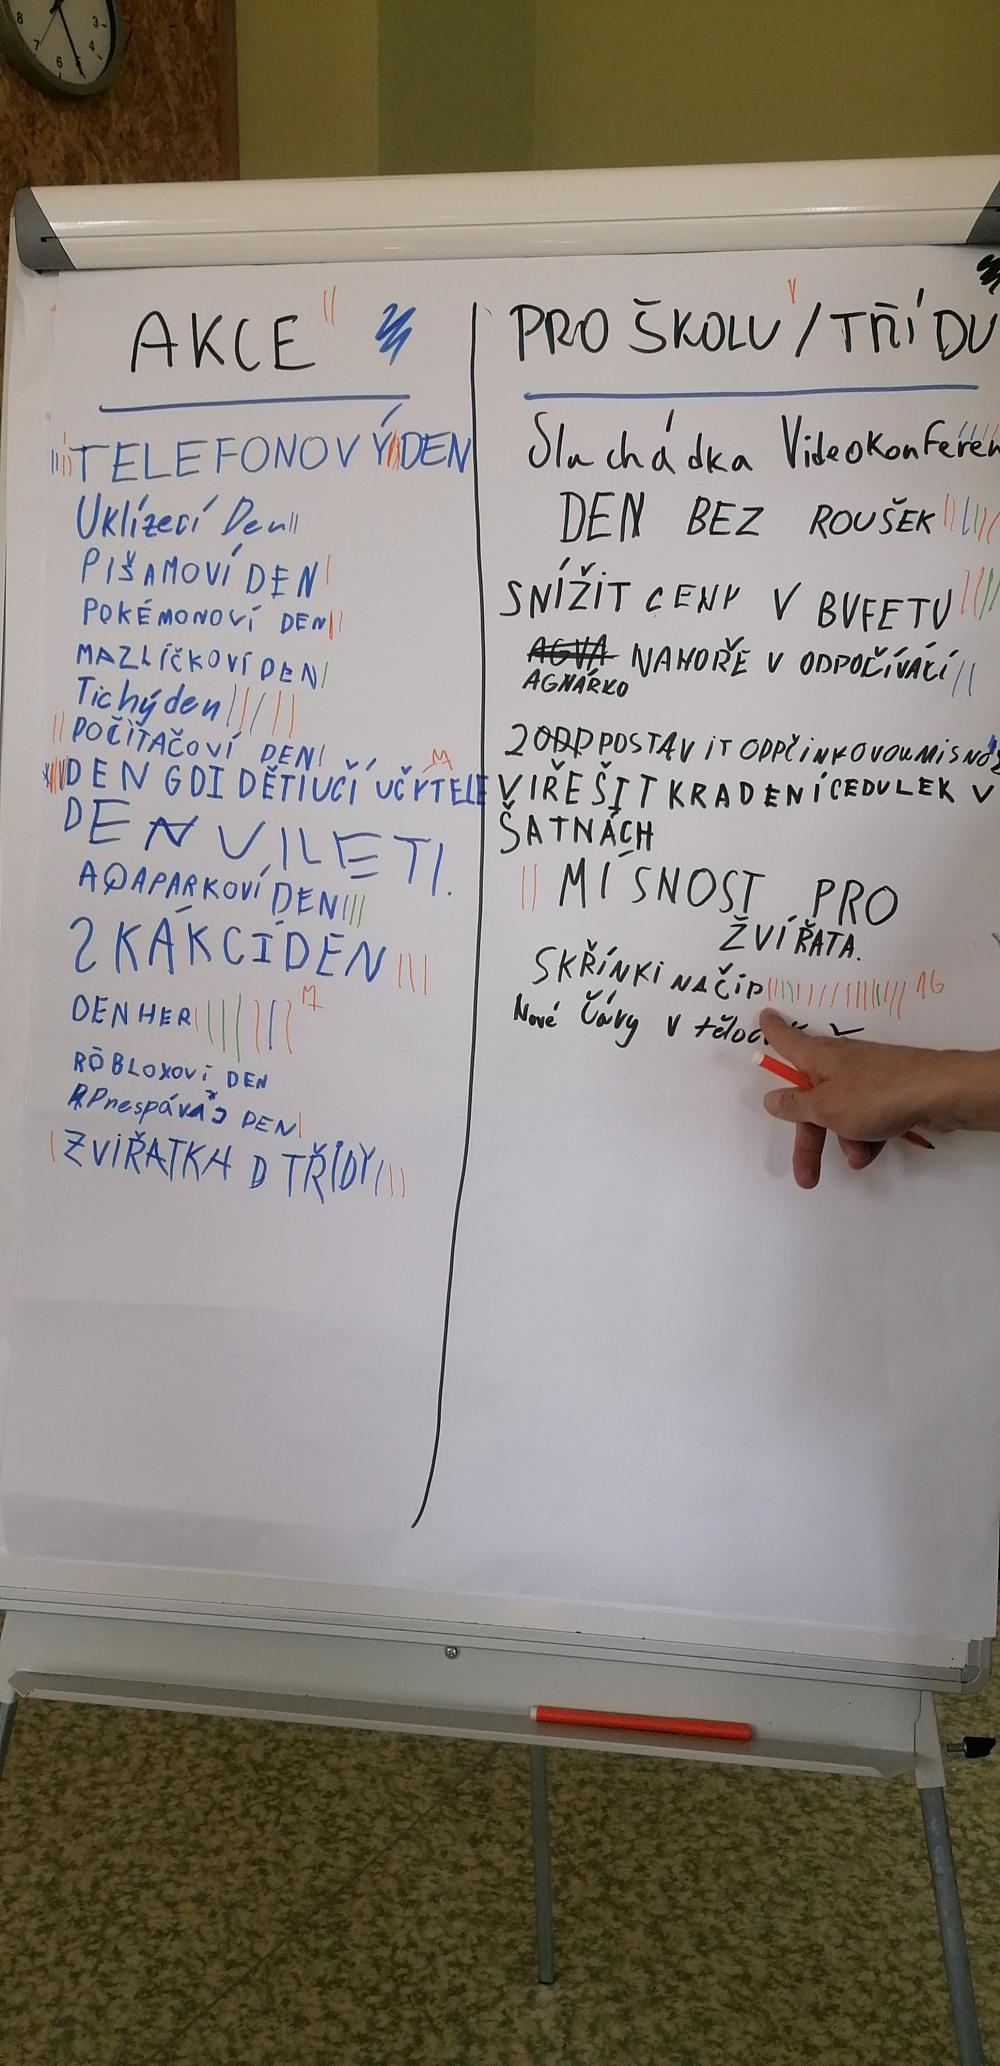 8 7 6 5 4 3
AKCE
TELEFONOVÝ DEN
Uklízecí Den
PIŠAMOVÍ DEN
POKÉMONOVÍ DEN
MAZLÍČKOVÍ DEN
Tichý den
POČÍTAČOVÍ DEN
DEN GDI DĚTI UČÍ UČYTELE
DEN V
AQAPARKOVÍ DEN
SKÁKCÍ DEN
DEN HER
RŌBLOXOVÍ DEN
DEN
ZVIŘATKA D TŘÍDY
PRO ŠKOLU / TŘÍDU
Sluchádka Videokonferen
DEN BEZ ROUŠEK
SNÍŽIT CENY V BUFETU
NAHOŘE V ODPOČÍVÁCÍ
POSTAVIT
VIŘEŠIT KRADENÍ CEDULEK V
ŠATNÁCH
MÍSNOST PRO
ŽVÍŘATA.
SKŘÍNKI NA ČIP 16
Nové Čáry v